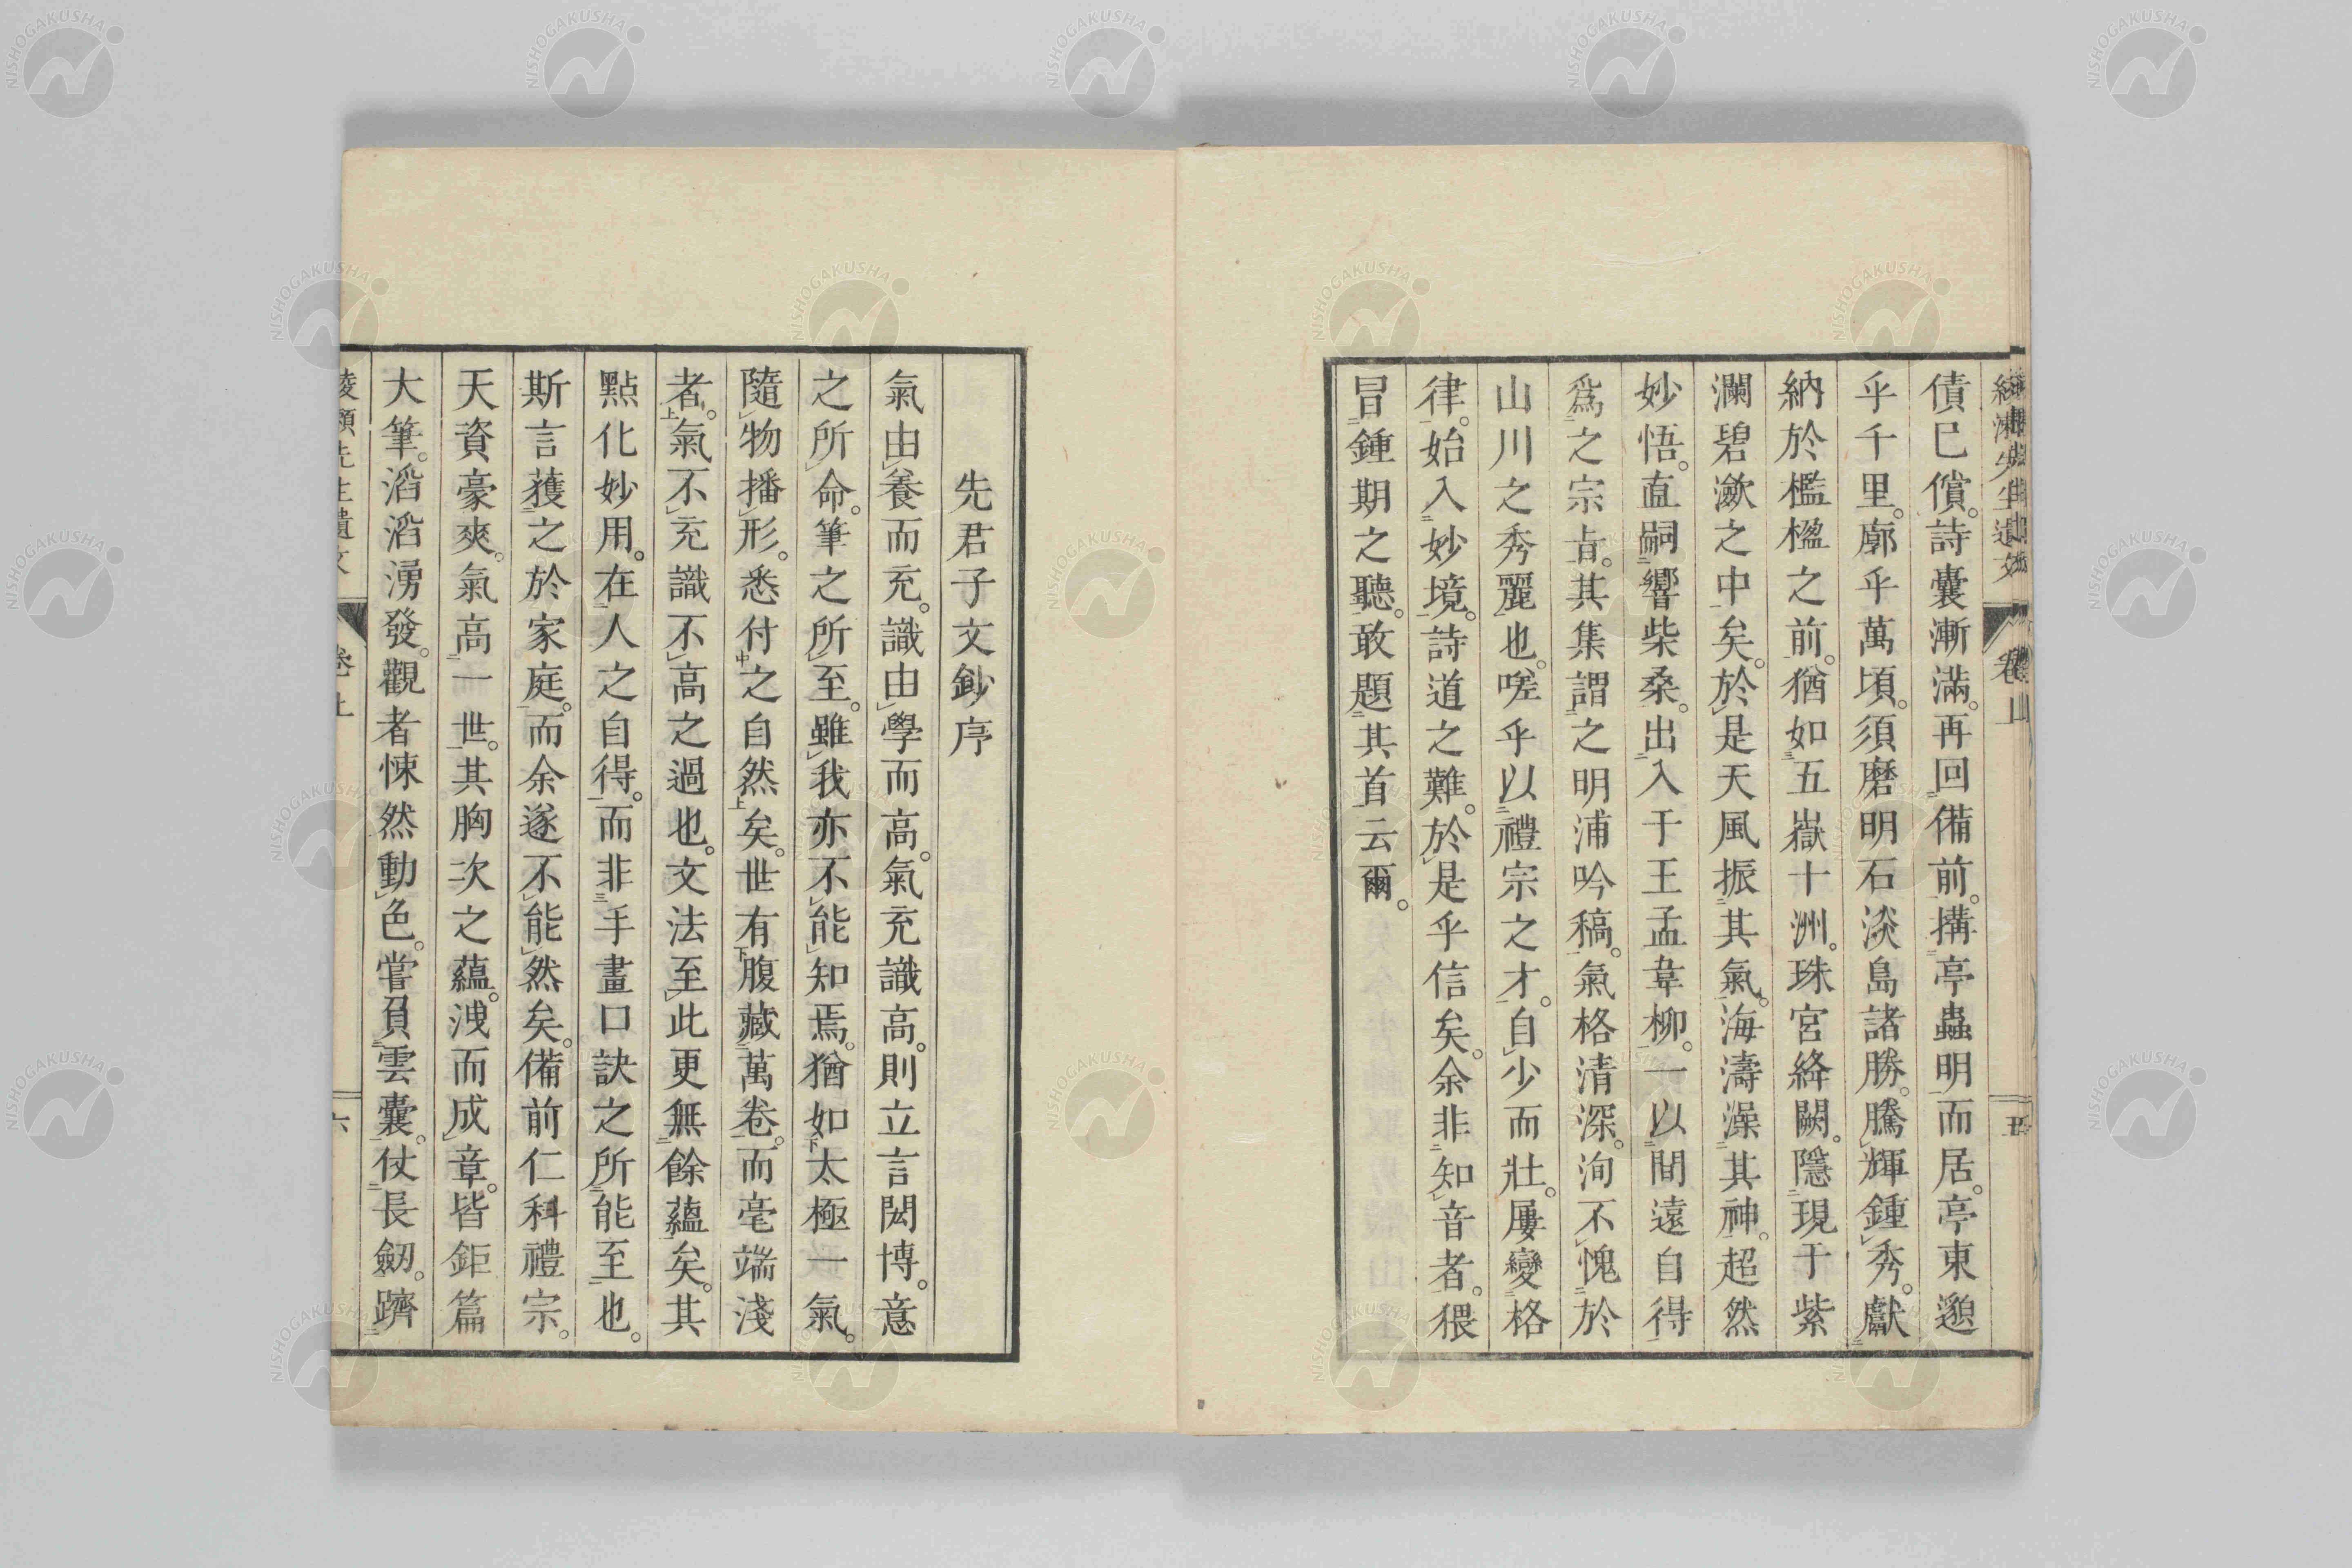 債已償。詩囊漸滿。再回備前。搆亭蟲明而居。亭東邈
乎千里。廓乎萬頃。須磨明石淡島諸勝。騰輝鍾秀。獻
納於檻楹之前。猶如五嶽十洲。珠宮絳闕。隱現于紫
瀾碧瀲之中矣。於是天風振其氣。海濤澡其神。超然
妙悟。直嗣響柴桑。出入于王孟韋柳。一以間遠自得
爲之宗旨。其集謂之明浦吟稿。氣格清深。洵不愧於
山川之秀麗也。嗟乎以禮宗之才。自少而壯。屢變格
律。始入妙境。詩道之難。於是乎信矣。余非知音者。猥
冒鍾期之聽。敢題其首云爾。
先君子文鈔序
氣由養而充。識由學而高。氣充識高。則立言閎博。意
之所命。筆之所至。雖我亦不能知焉。猶如太極一氣。
隨物播形。悉付之自然矣。世有腹藏萬卷。而毫端淺
者。氣不充識不高之過也。文法至此更無餘蘊矣。其
點化妙用。在人之自得。而非手畫口訣之所能至也。
斯言獲之於家庭。而余遂不能然矣。備前仁科禮宗。
天資豪爽。氣高一世。其胸次之蘊。洩而成章。皆鉅篇
大筆。滔滔湧發。觀者悚然動色。嘗負雲囊。仗長劒。躋
卷上
六
NISHOGAKUSHA